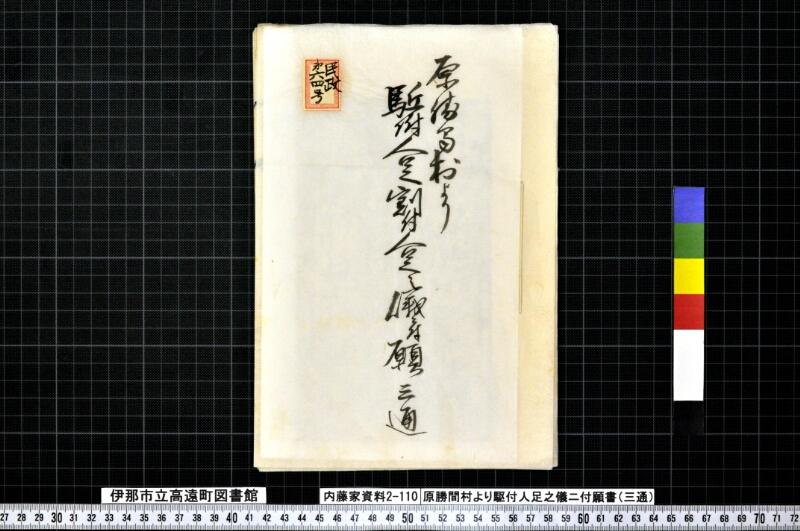 民政
第六四号
原勝間村より
駈附人足割付人足之儀ニ付願三通
伊那市立高遠町図書館
内藤家資料2-110
原勝間村より駆付人足之儀ニ付願書(三通)
27 28 29 30 31 32 33 34 35 36 37 38 39 40 41 42 43 44 45 46 47 48 49 50 51 52 53 54 55 56 57 58 59 60 61 62 63 64 65 66 67 68 69 70 71 72